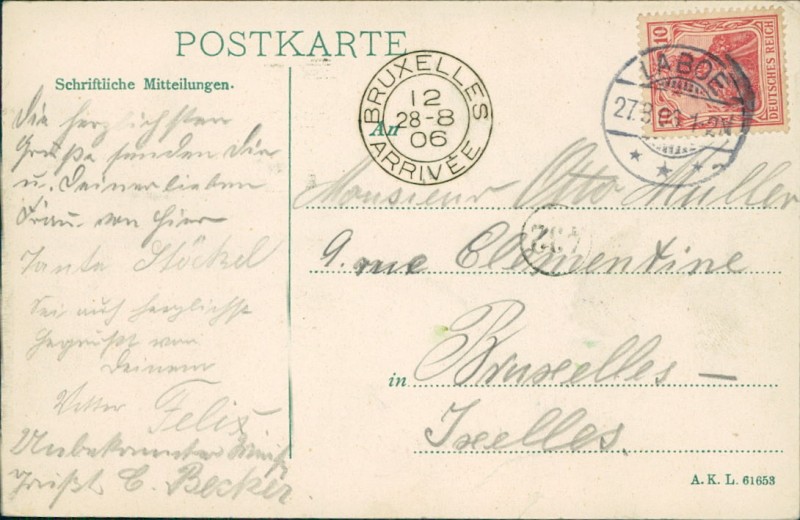 POSTKARTE
Schriftliche Mitteilungen.
Die herzlichsten
Grüße senden Dir
u. Deiner lieben
Frau von hier
Tante Stöckel
Sei auch herzlichst
gegrüßt von
Deinem
Vetter Felix
Unbekannter Weise
grüßt C. Becker
BRUXELLES
12
28-8
06
ARRIVÉE
LABOE
27.8.06 1-2N
10
DEUTSCHES REICH
An
Monsieur Otto Müller
9. rue Clementine
in Bruxelles —
Ixelles
A. K. L. 61653